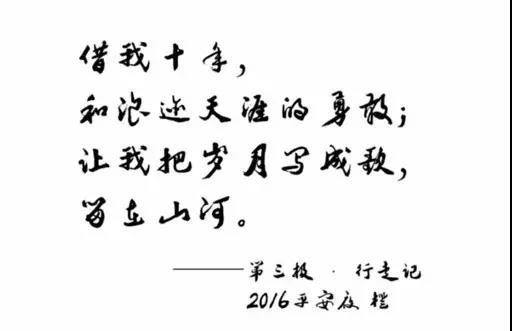 借我十年，
和浪迹天涯的勇敢；
让我把岁月写成歌，
留在山河。
——第三极·行走记
2016平安夜